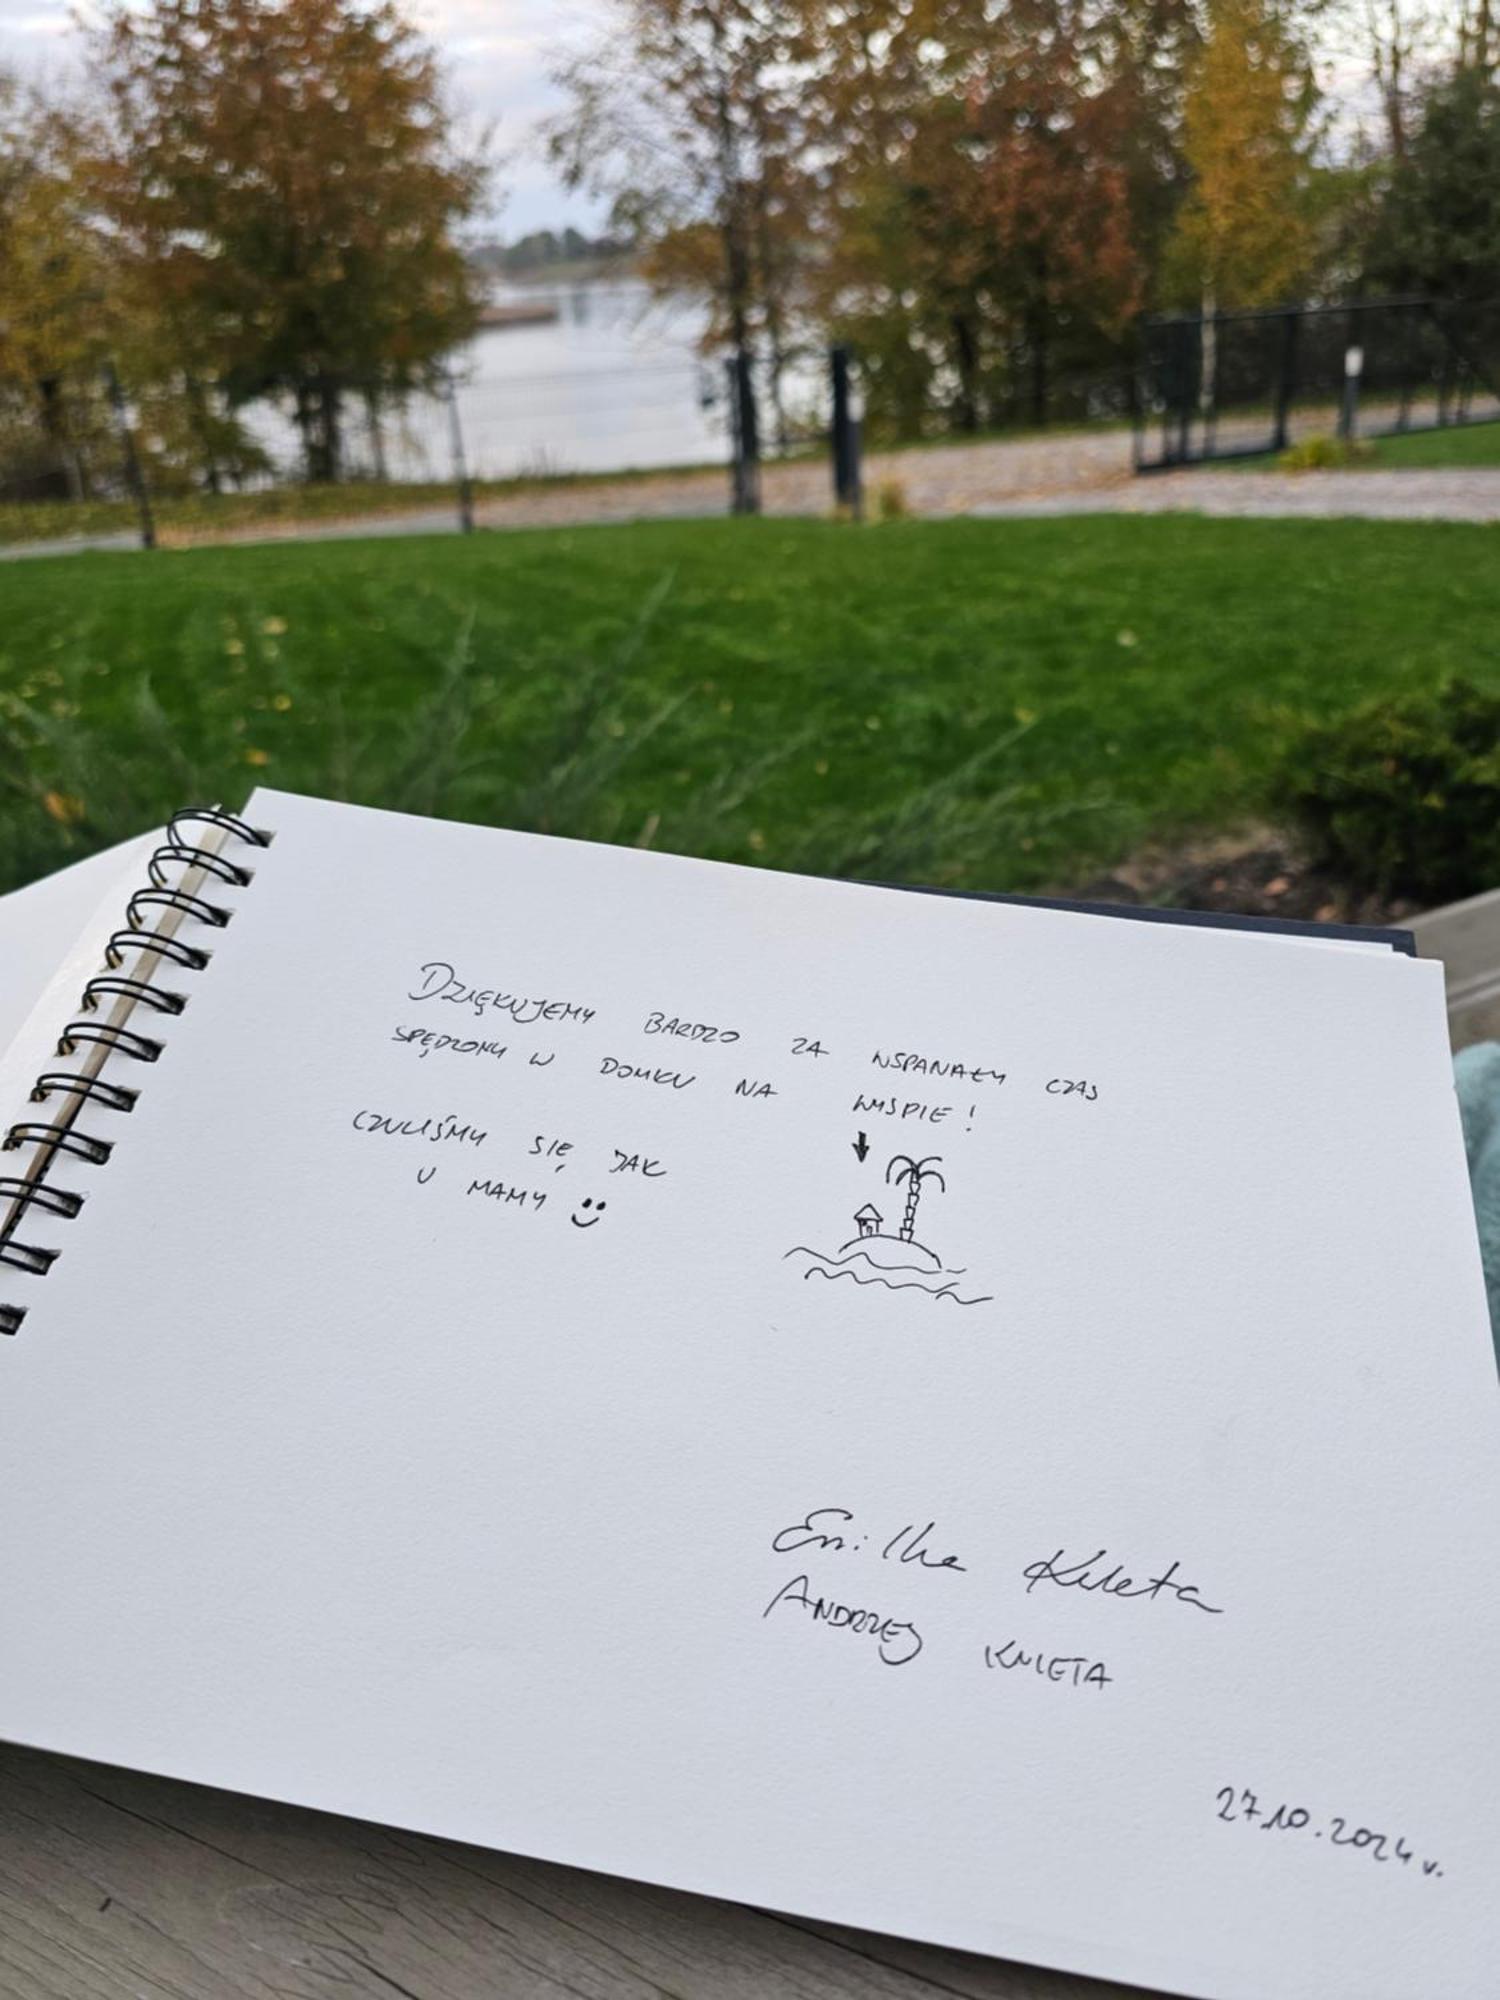 Dziękujemy bardzo za wspaniały czas
spędzony w domku na wyspie!
czuliśmy się jak
u mamy
Emilka Knieta
Andrzej Knieta
27.10.2024 r.